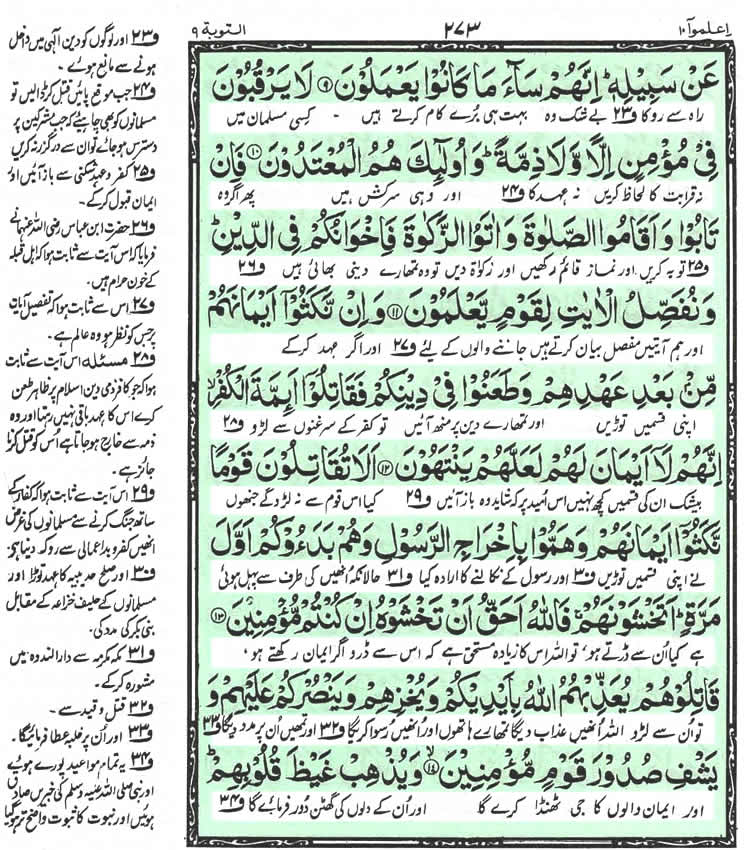 اعلموآ ١٠
٢٧٣
التوبة ٩
عَنْ سَبِيْلِهٖ ؕ اِنَّهُمْ سَآءَ مَا كَانُوْا يَعْمَلُوْنَ ۹ لَا يَرْقُبُوْنَ
راہ سے روکا ف۲۳ بے شک وہ بہت ہی بُرے کام کرتے ہیں - کسی مسلمان میں
فِيْ مُؤْمِنٍ اِلًّا وَّلَا ذِمَّةً ؕ وَاُولٰٓئِكَ هُمُ الْمُعْتَدُوْنَ ۱۰ فَاِنْ
نہ قرابت کا لحاظ کریں نہ عہد کا ف۲۴ اور وہی سرکش ہیں پھر اگر وہ
تَابُوْا وَاَقَامُوا الصَّلٰوةَ وَاٰتَوُا الزَّكٰوةَ فَاِخْوَانُكُمْ فِي الدِّيْنِ ؕ
ف۲۵ توبہ کریں اور نماز قائم رکھیں اور زکوٰۃ دیں تو وہ تمھارے دینی بھائی ہیں ف۲۶
وَنُفَصِّلُ الْاٰيٰتِ لِقَوْمٍ يَّعْلَمُوْنَ ۱۱ وَاِنْ نَّكَثُوْۤا اَيْمَانَهُمْ
اور ہم آیتیں مفصل بیان کرتے ہیں جاننے والوں کے لیٔے ف۲۷ اور اگر عہد کرکے
مِّنْۢ بَعْدِ عَهْدِهِمْ وَطَعَنُوْا فِيْ دِيْنِكُمْ فَقَاتِلُوْۤا اَىِٕمَّةَ الْكُفْرِ ۙ
اپنی قسمیں توڑیں اور تمھارے دین پر منھ آئیں تو کفر کے سرغنوں سے لڑو ف۲۸
اِنَّهُمْ لَاۤ اَيْمَانَ لَهُمْ لَعَلَّهُمْ يَنْتَهُوْنَ ۱۲ اَلَا تُقَاتِلُوْنَ قَوْمًا
بیشک ان کی قسمیں کچھ نہیں اس اُمید پر کہ شاید وہ باز آئیں ف۲۹ کیا اس قوم سے نہ لڑو گے جنھوں
نَّكَثُوْۤا اَيْمَانَهُمْ وَهَمُّوْا بِاِخْرَاجِ الرَّسُوْلِ وَهُمْ بَدَءُوْكُمْ اَوَّلَ
نے اپنی قسمیں توڑیں ف۳۰ اور رسول کے نکالنے کا ارادہ کیا ف۳۱ حالانکہ اُنھیں کی طرف سے پہل ہوئی
مَرَّةٍ ؕ اَتَخْشَوْنَهُمْ ۚ فَاللّٰهُ اَحَقُّ اَنْ تَخْشَوْهُ اِنْ كُنْتُمْ مُّؤْمِنِيْنَ ۱۳
ہے کیا اُن سے ڈرتے ہو، تو اللہ اس کا زیادہ مستحق ہے کہ اس سے ڈرو اگر ایمان رکھتے ہو،
قَاتِلُوْهُمْ يُعَذِّبْهُمُ اللّٰهُ بِاَيْدِيْكُمْ وَيُخْزِهِمْ وَيَنْصُرْكُمْ عَلَيْهِمْ وَ
تو اُن سے لڑو اللہ اُنھیں عذاب دیگا تمھارے ہاتھوں اور اُنھیں رسوا کریگا ف۳۲ اور تمھیں اُن پر مدد دیگا ف۳۳
يَشْفِ صُدُوْرَ قَوْمٍ مُّؤْمِنِيْنَ ۱۴ وَيُذْهِبْ غَيْظَ قُلُوْبِهِمْ ؕ
اور ایمان والوں کا جی ٹھنڈا کرے گا اور اُن کے دلوں کی گھٹن دُور فرمائے گا ف۳۴
ف۲۳ اور لوگوں کو دین الٰہی میں داخل
ہونے سے مانع ہوئے۔
ف۲۴ جب موقع پائیں قتل کر ڈالیں تو
مسلمانوں کو بھی چاہیئے کہ جب مشرکین پر
دسترس ہوجائے تو ان سے درگزر نہ کریں
ف۲۵ کفر و عہد شکنی سے باز آئیں اور
ایمان قبول کرکے۔
ف۲۶ حضرت ابن عباس رضی اللہ عنہما نے
فرمایا کہ اس آیت سے ثابت ہوا کہ اہل قبلہ
کے خون حرام ہیں۔
ف۲۷ اس سے ثابت ہوا کہ تفصیل آیات
پر جس کو نظر ہو وہ عالم ہے۔
ف۲۸ مسئلہ اس آیت سے ثابت
ہوا کہ جو کافر ذمی دین اسلام پر ظاہر طعن
کرے اس کا عہد باقی نہیں رہتا اور وہ
ذمہ سے خارج ہوجاتا ہے اُس کو قتل کرنا
جائز ہے۔
ف۲۹ اس آیت سے ثابت ہوا کہ کفار کے
ساتھ جنگ کرنے سے مسلمانوں کی غرض
انھیں کفر و بداعمالی سے روک دینا ہے:
ف۳۰ اور صلح حدیبیہ کا عہد توڑا اور
مسلمانوں کے حلیف خزاعہ کے مقابل
بنی بکر کی مدد کی۔
ف۳۱ مکہ مکرمہ سے دار الندوہ میں
مشورہ کرکے۔
ف۳۲ قتل و قید سے۔
ف۳۳ اور اُن پر غلبہ عطا فرمائیگا۔
ف۳۴ یہ تمام مواعید پورے ہوئے
اور نبی صلی اللہ علیہ وسلم کی خبریں صادق
ہوئیں اور نبوت کا ثبوت واضح تر ہوگیا